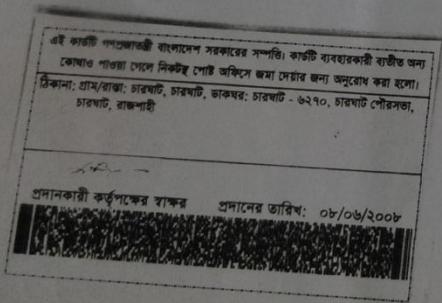 এই কার্ডটি গণপ্রজাতন্ত্রী বাংলাদেশ সরকারের সম্পত্তি। কার্ডটি ব্যবহারকারী ব্যতীত অন্য
কোথাও পাওয়া গেলে নিকটস্থ পোষ্ট অফিসে জমা দেয়ার জন্য অনুরোধ করা হলো।
ঠিকানা: গ্রাম/রাস্তা: চারঘাট, চারঘাট, ডাকঘর: চারঘাট - ৬২৭০, চারঘাট পৌরসভা,
চারঘাট, রাজশাহী
প্রদানকারী কর্তৃপক্ষের স্বাক্ষর প্রদানের তারিখ: ০৮/০৬/২০০৮